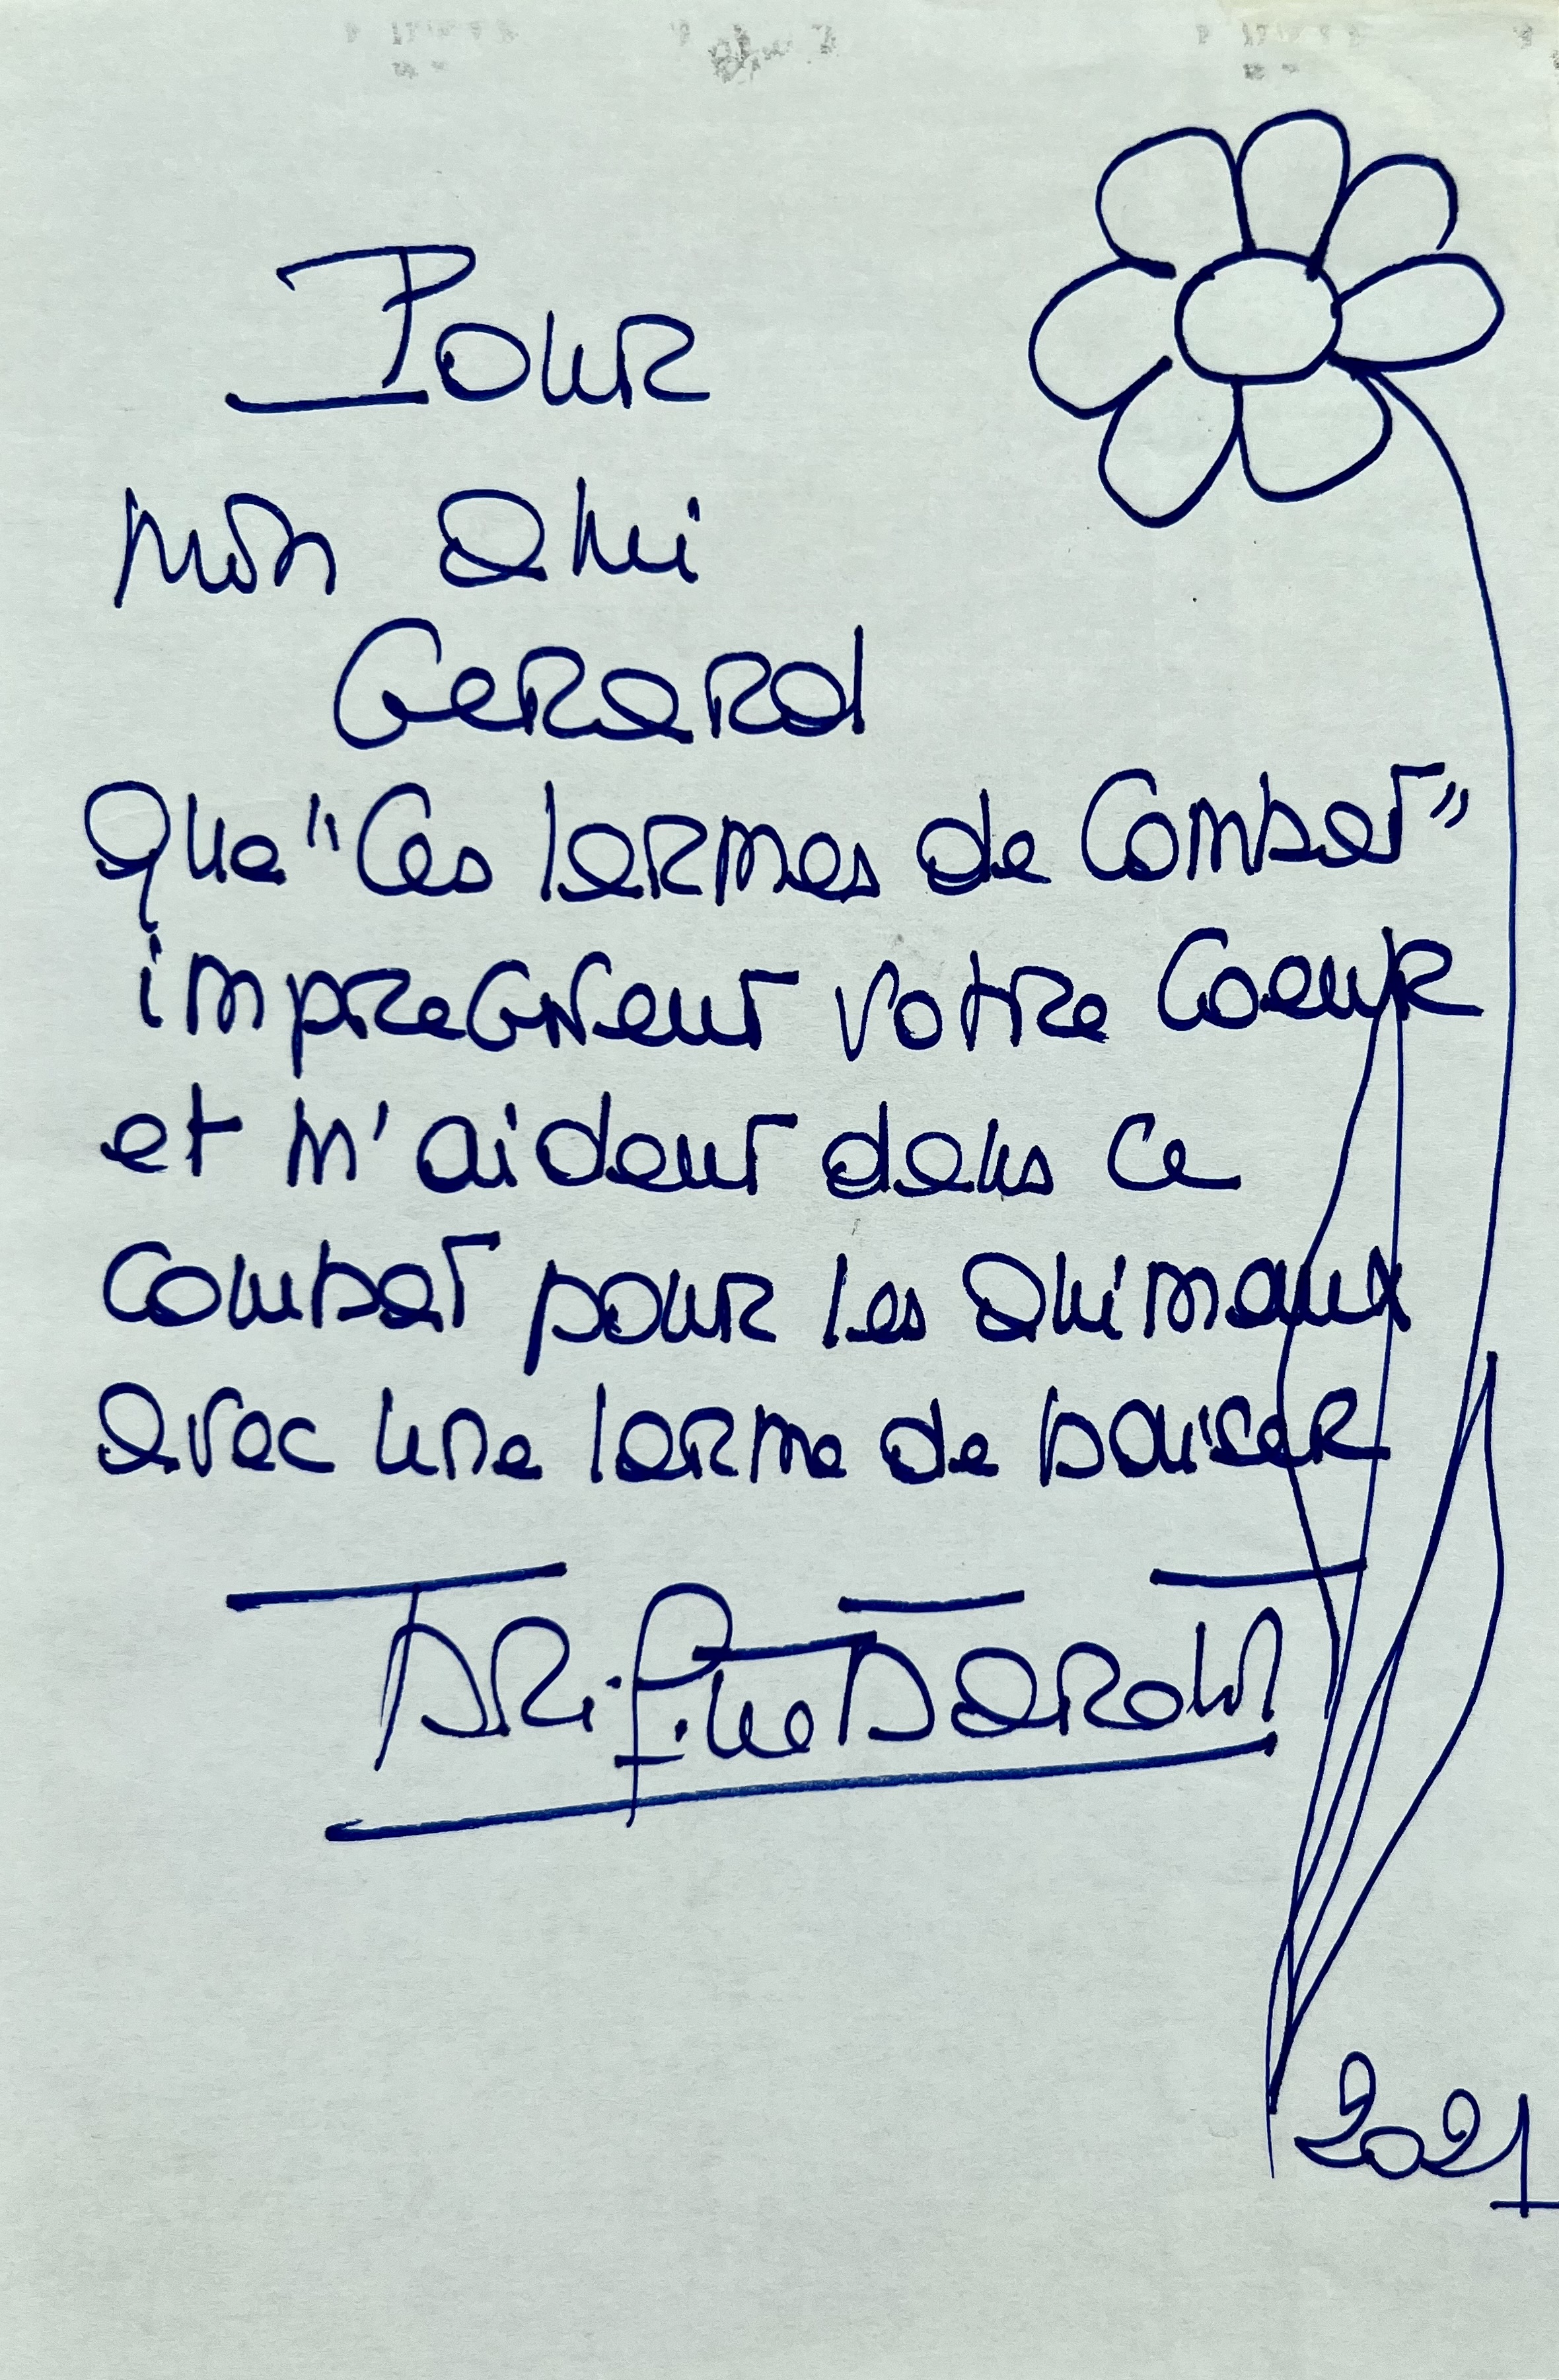 Pour
mon ami
Gerard
Que "Ces larmes de Combat"
impregnent votre Coeur
et m'aident dans ce
Combat pour les animaux
avec une larme de baiser
Brigitte Bardot
2021